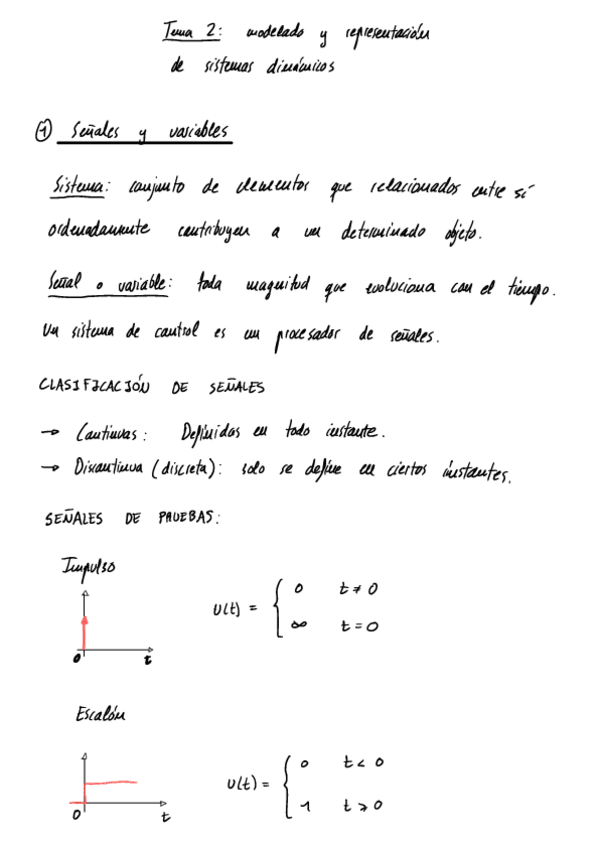 Tema 2: modelado y representación
de sistemas dinámicos
① Señales y variables
Sistema: conjunto de elementos que relacionados entre sí
ordenadamente contribuyen a un determinado objeto.
Señal o variable: toda magnitud que evoluciona con el tiempo.
Un sistema de control es un procesador de señales.
CLASIFICACIÓN DE SEÑALES
→ Continuas: Definidas en todo instante.
→ Discontinua (discreta): solo se define en ciertos instantes.
SEÑALES DE PRUEBAS:
Impulso
U(t) = { 0 t ≠ 0
∞ t = 0
0 t
Escalón
U(t) = { 0 t < 0
1 t > 0
0 t